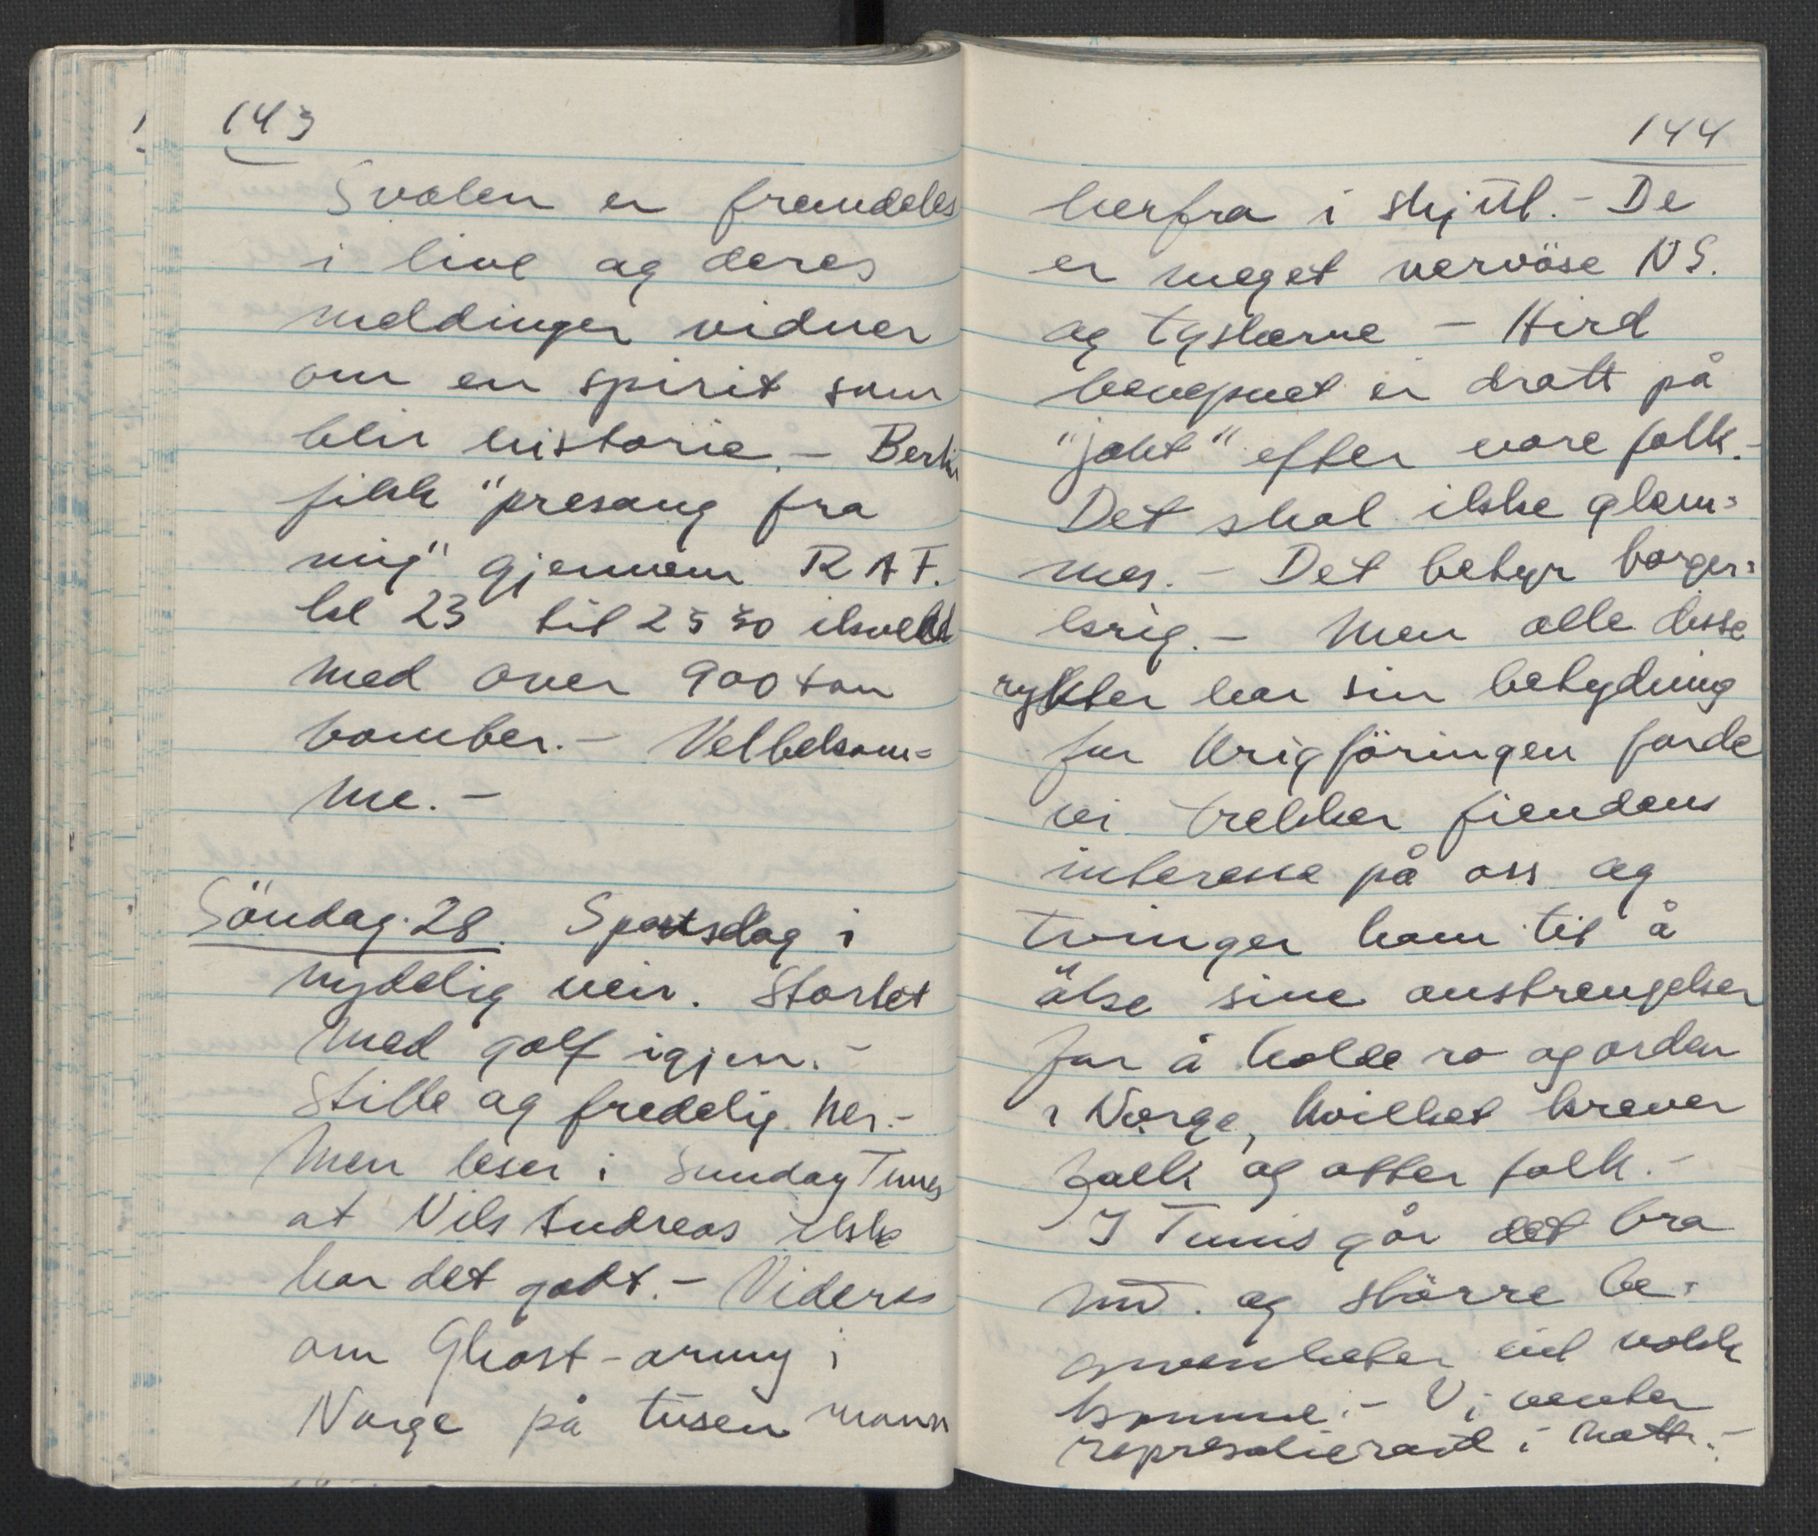 143
Svalen er fremdeles
i live og deres
meldinger vidner
om en spirit som
blir historie. - Berlin
fikk "presang fra
mig" gjennem RAF.
kl 23 til 23 30 ikveld
med over 900 ton
bomber. - Velbekom=
me. -
Söndag. 28. Sportsdag i
nydelig veir. Startet
med golf igjen. -
Stille og fredelig her. -
Men leser i Sunday Times
at Nils Andreas ikke
har det godt. - Videre
om Ghost-army i
Norge på tusen mann
144
herfra i skjul. - De
er meget nervöse NS.
og tyskerne - Hird
bevepnet er dratt på
"jakt" efter vore folk. -
Det skal ikke glem=
mes. - Det betyr borger=
krig. - Men alle disse
rykter har sin betydning
for krigföringen forde
vi trekker fiendens
interesse på oss og
tvinger ham til å
öke sine anstrengelser
for å holde ro og orden
i Norge, hvilket krever
folk og atter folk. -
I Tunis går det bra
nu. og större be=
givenheter vil
komme. - Vi venter
represalieraid i natt. -